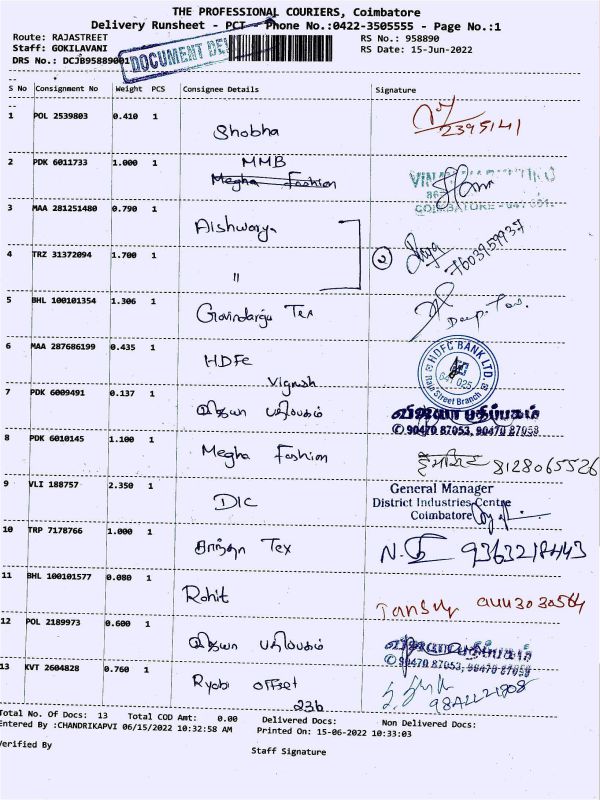 THE PROFESSIONAL COURIERS, Coimbatore
Delivery Runsheet - PCT - Phone No.:0422-3505555 - Page No.:1
Route: RAJASTREET
RS No.: 958890
Staff: GOKILAVANI
RS Date: 15-Jun-2022
DRS No.: DCJB95889001
DOCUMENT DEL
S No Consignment No Weight PCS Consignee Details Signature
1 POL 2539803 0.410 1 Shobha 2395141
2 PDK 6011733 1.000 1 MMB
Megha Fashion
COIMBATORE - 641 001.
3 MAA 281251480 0.790 1 Aishwarya
4 TRZ 31372094 1.700 1 " 2 7603959937
5 BHL 100101354 1.306 1 Govindaraju Tex
6 MAA 287686199 0.435 1 HDFC
Vignesh
HDFC BANK LTD.
641 025
Raja Street Branch
7 PDK 6009491 0.137 1 விஜயா பதிப்பகம் விஜயா பதிப்பகம்
90470 87053, 90470 87058
8 PDK 6010145 1.100 1 Megha Fashion 8128065526
9 VLI 188757 2.350 1 DIC
General Manager
District Industries Centre
Coimbatore
10 TRP 7178766 1.000 1 சாந்தா Tex N. 9363218443
11 BHL 100101577 0.080 1 Rohit
12 POL 2189973 0.600 1 விஜயா பதிப்பகம் விஜயா பதிப்பகம்
90470 87053, 90470 87058
13 KVT 2604828 0.760 1 Ryobi offset
236
Total No. Of Docs: 13 Total COD Amt: 0.00 Delivered Docs: Non Delivered Docs:
Entered By :CHANDRIKAPVI 06/15/2022 10:32:58 AM Printed On: 15-06-2022 10:33:03
Verified By
Staff Signature